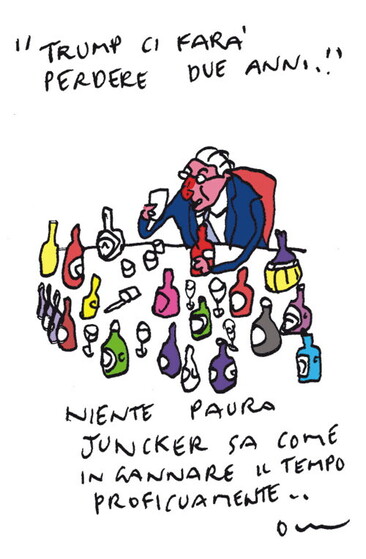 "TRUMP CI FARA'
PERDERE DUE ANNI.!"
NIENTE PAURA
JUNCKER SA COME
INGANNARE IL TEMPO
PROFICUAMENTE..